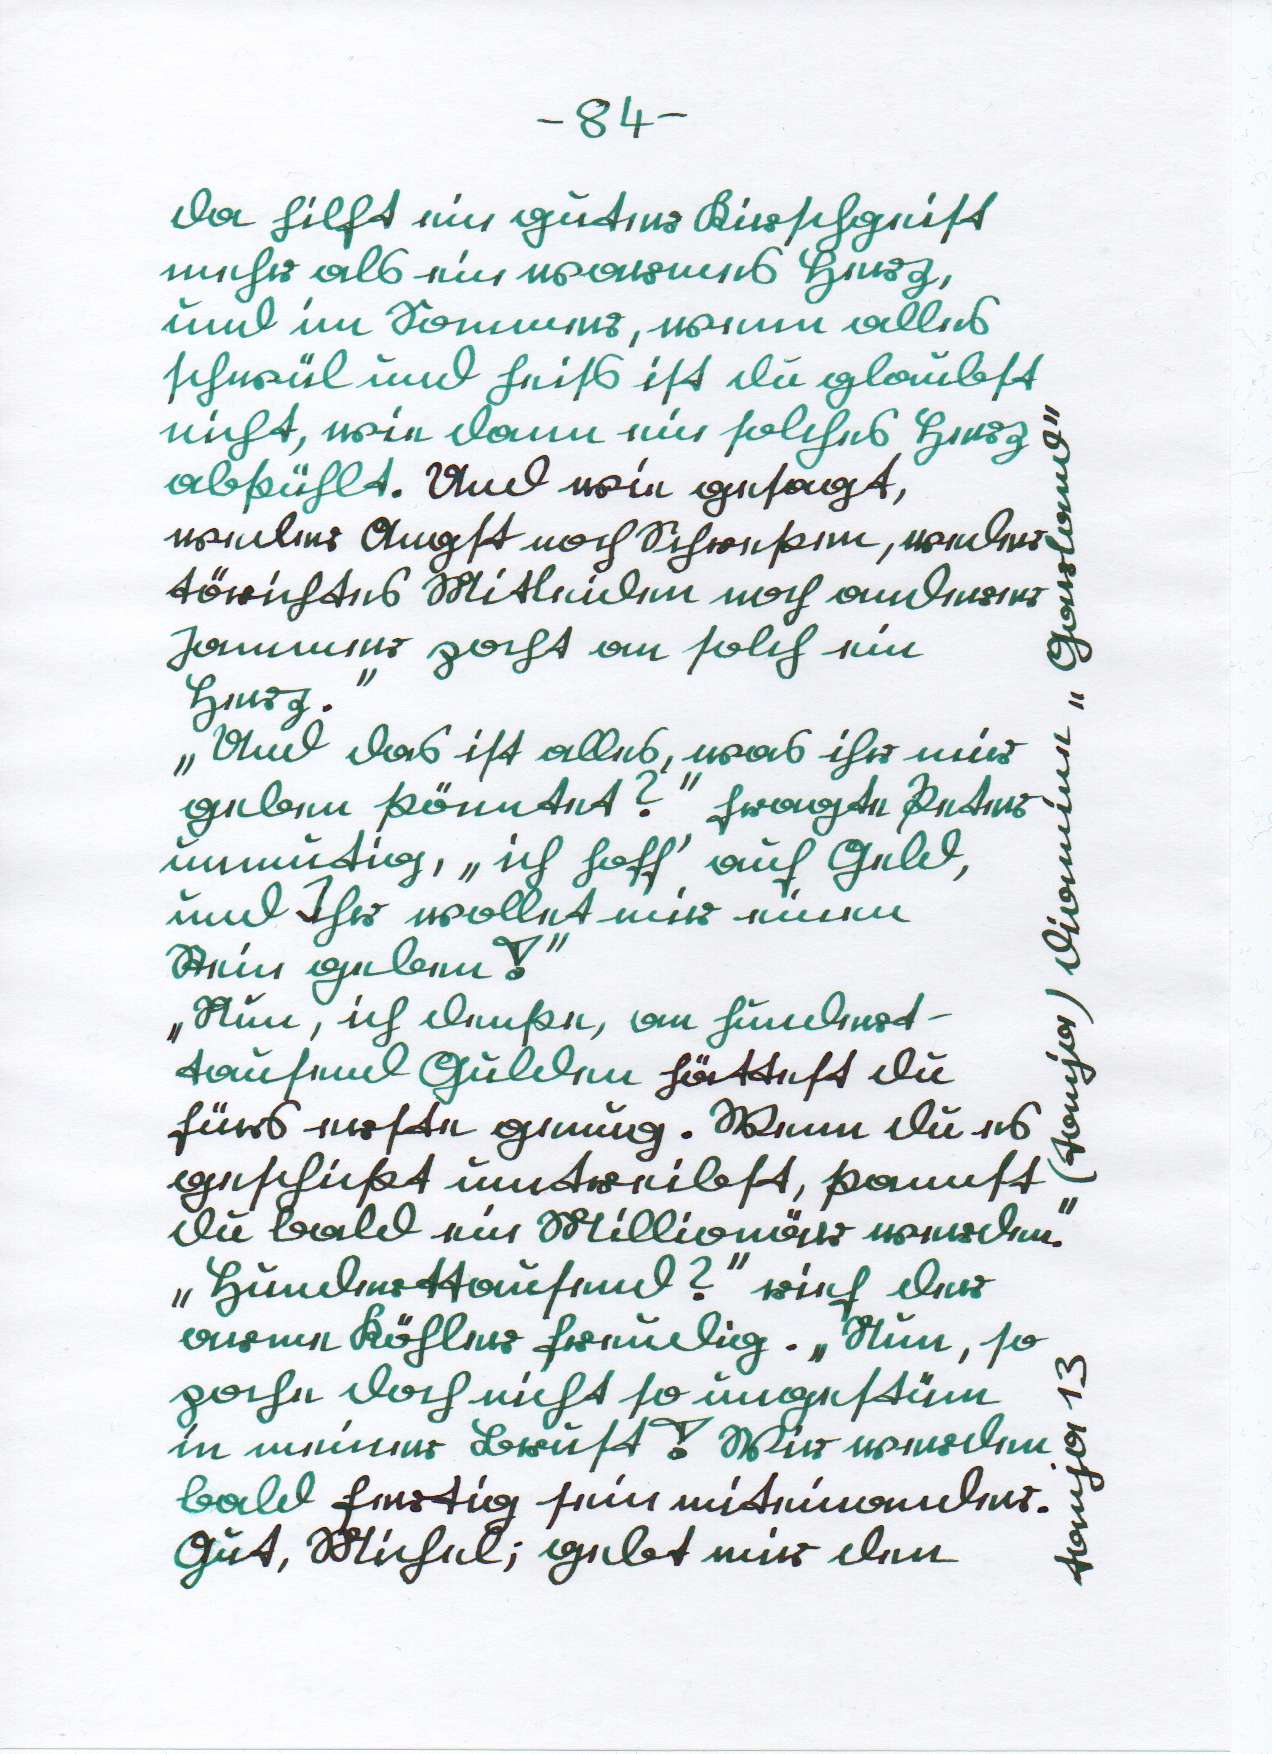 -84-
da hilft ein guter Kirschgeist
mehr als ein warmes Herz,
und im Sommer, wenn alles
schwül und heiß ist du glaubst
nicht, wie dann ein solches Herz
abkühlt. Und wie gesagt,
weder Angst noch Schrecken, weder
törichtes Mitleiden noch anderer
Jammer pocht an solch ein
Herz."
„Und das ist alles, was ihr mir
geben könntet?" fragte Peter
unmutig, „ich hoff' auf Geld,
und Ihr wollet mir einen
Stein geben!"
„Nun, ich denke, an hundert-
tausend Gulden hättest du
fürs erste genug. Wenn du es
geschickt umtreibst, kannst
du bald ein Millionär werden."
„Hunderttausend?" rief der
arme Köhler freudig. „Nun, so
poche doch nicht so ungestüm
in meiner Brust! Wir werden
bald fertig sein miteinander.
Gut, Michel; gebt mir den
tanja 13 (tanja) diamine „Garland"